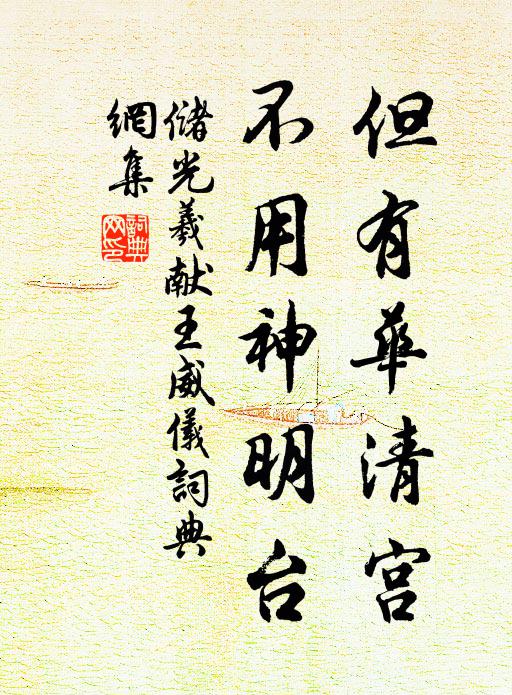 但有華清宮
不用神明台
儲光羲献王威儀詞典
網集
詞典
网印